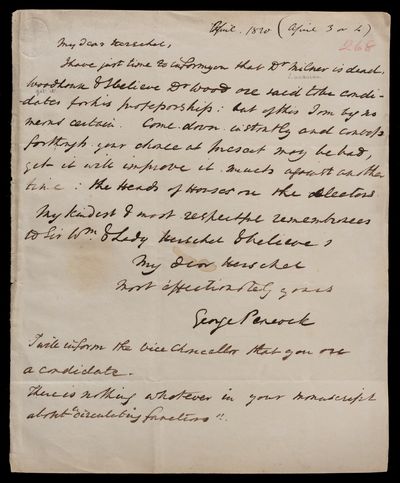 April. 1820 (April 3 or 4)
268
My dear Herschel,
I have just time to inform you that Dr Milner is dead.
Woodhouse & I believe Dr Wood are said to be candi-
dates for his professorship: but of this I am by no
means certain. Come down instantly and canvass
for though your chance at present may be bad,
yet it will improve it much against another
time: the Heads of Houses are the electors
My kindest & most respectful remembrances
to Sir Wm. & Lady Herschel & believe
My dear Herschel
most affectionately yours
George Peacock
I will inform the Vice Chancellor that you are
a candidate.
There is nothing whatever in your manuscript
about "circulating functions".